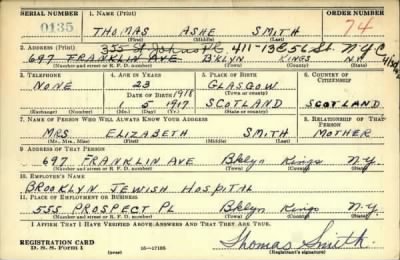 SERIAL NUMBER 1. NAME (Print) ORDER NUMBER
0135 THOMAS ASHE SMITH 74
(First) (Middle) (Last)
2. ADDRESS (Print) 355 St Johns Pl. 411-13 E 56 St. N.Y.C
697 FRANKLIN AVE B'KLYN KINGS N.Y.
(Number and street or R. F. D. number) (Town) (County) (State)
3. TELEPHONE 4. AGE IN YEARS 5. PLACE OF BIRTH 6. COUNTRY OF CITIZENSHIP
NONE 23 GLASGOW
DATE OF BIRTH 1918
1 5 1917 SCOTLAND SCOTLAND
(Exchange) (Number) (Mo.) (Day) (Yr.) (State or country)
7. NAME OF PERSON WHO WILL ALWAYS KNOW YOUR ADDRESS 8. RELATIONSHIP OF THAT PERSON
MRS ELIZABETH SMITH MOTHER
(Mr., Mrs., Miss) (First) (Middle) (Last)
9. ADDRESS OF THAT PERSON
697 FRANKLIN AVE Bklyn Kings N.Y.
(Number and street or R. F. D. number) (Town) (County) (State)
10. EMPLOYER'S NAME
BROOKLYN JEWISH HOSPITAL
11. PLACE OF EMPLOYMENT OR BUSINESS
555 PROSPECT PL Bklyn Kings N.Y.
(Number and street or R. F. D. number) (Town) (County) (State)
I AFFIRM THAT I HAVE VERIFIED ABOVE ANSWERS AND THAT THEY ARE TRUE.
REGISTRATION CARD
D. S. S. FORM 1 (over) 16—17105 Thomas Smith.
(Registrant's signature)